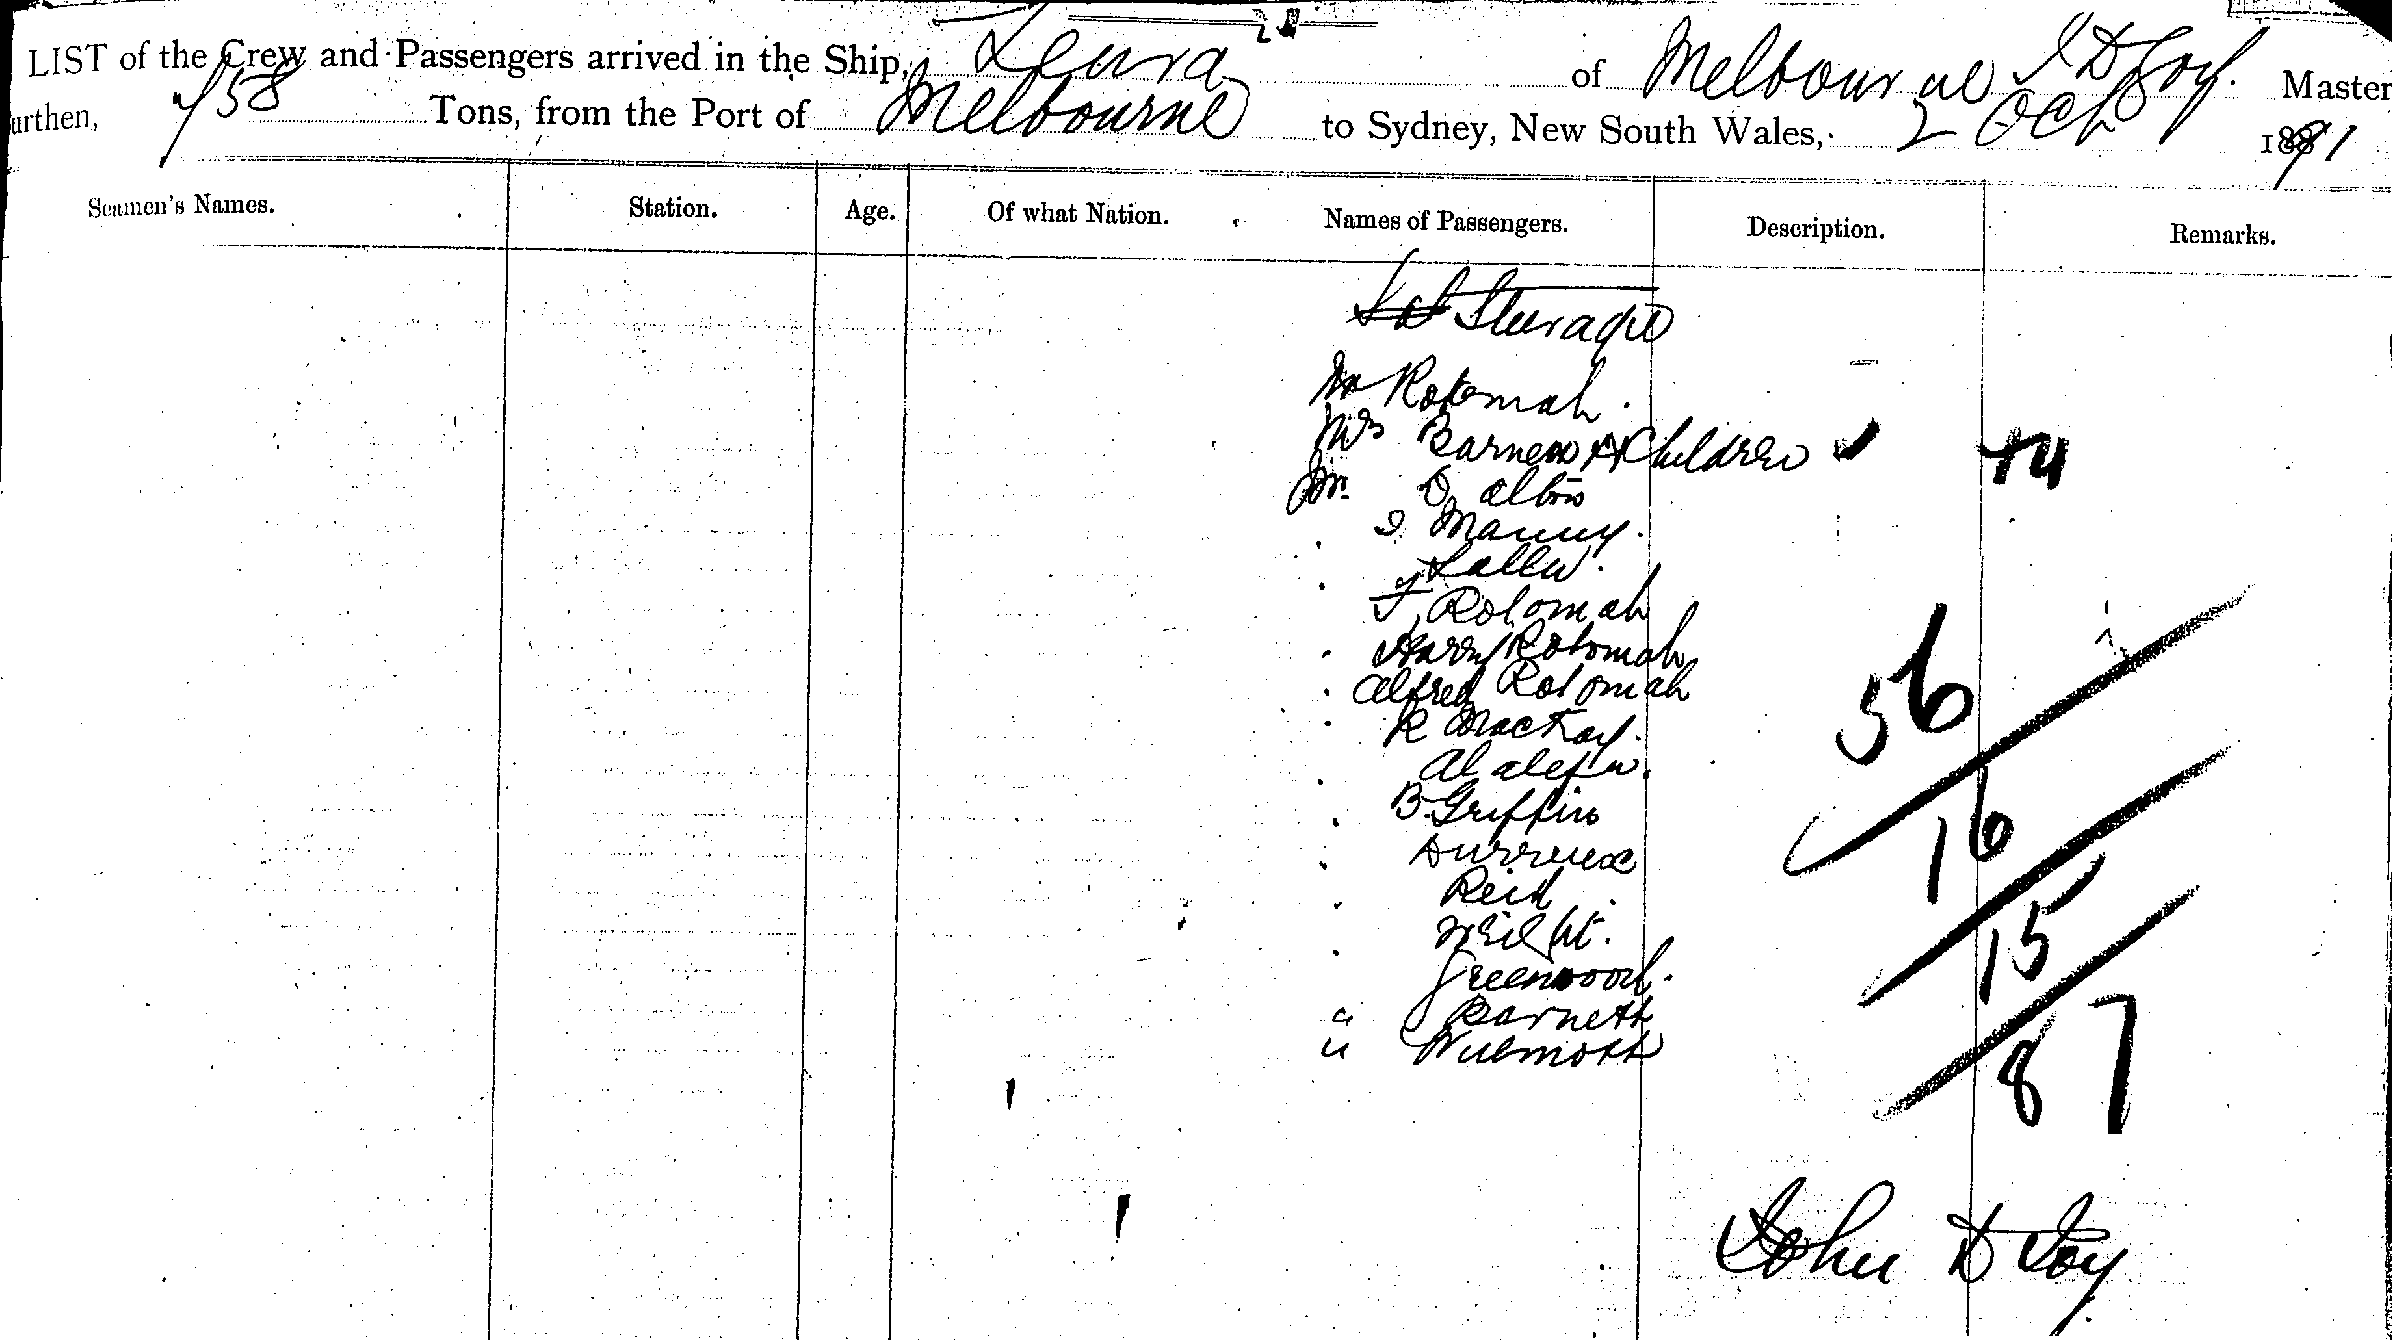 LIST of the Crew and Passengers arrived in the Ship, Leura of Melbourne J D Joy. Master
urthen, 758 Tons, from the Port of Melbourne to Sydney, New South Wales, 2 Oct 1891
Seamen's Names. Station. Age. Of what Nation. Names of Passengers. Description. Remarks.
Steerage
Mr Rotomah.
Mrs Barnes & Children +4
Mr. Dalton
I Manny.
Rotomah
Harry Rotomah
Alfred Rotomah
R MacKay.
B. Griffin
Reid
Wright.
Greenwood.
" Barnett
" Wilmott
56
16
15
87
John D Joy